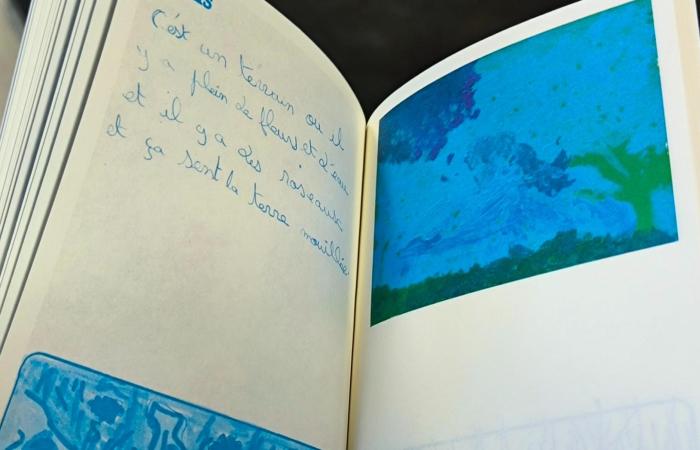 C'est un terrain ou il
y a plein de fleurs et d'eau
et il y a des roseaux
et ça sent la terre mouillée